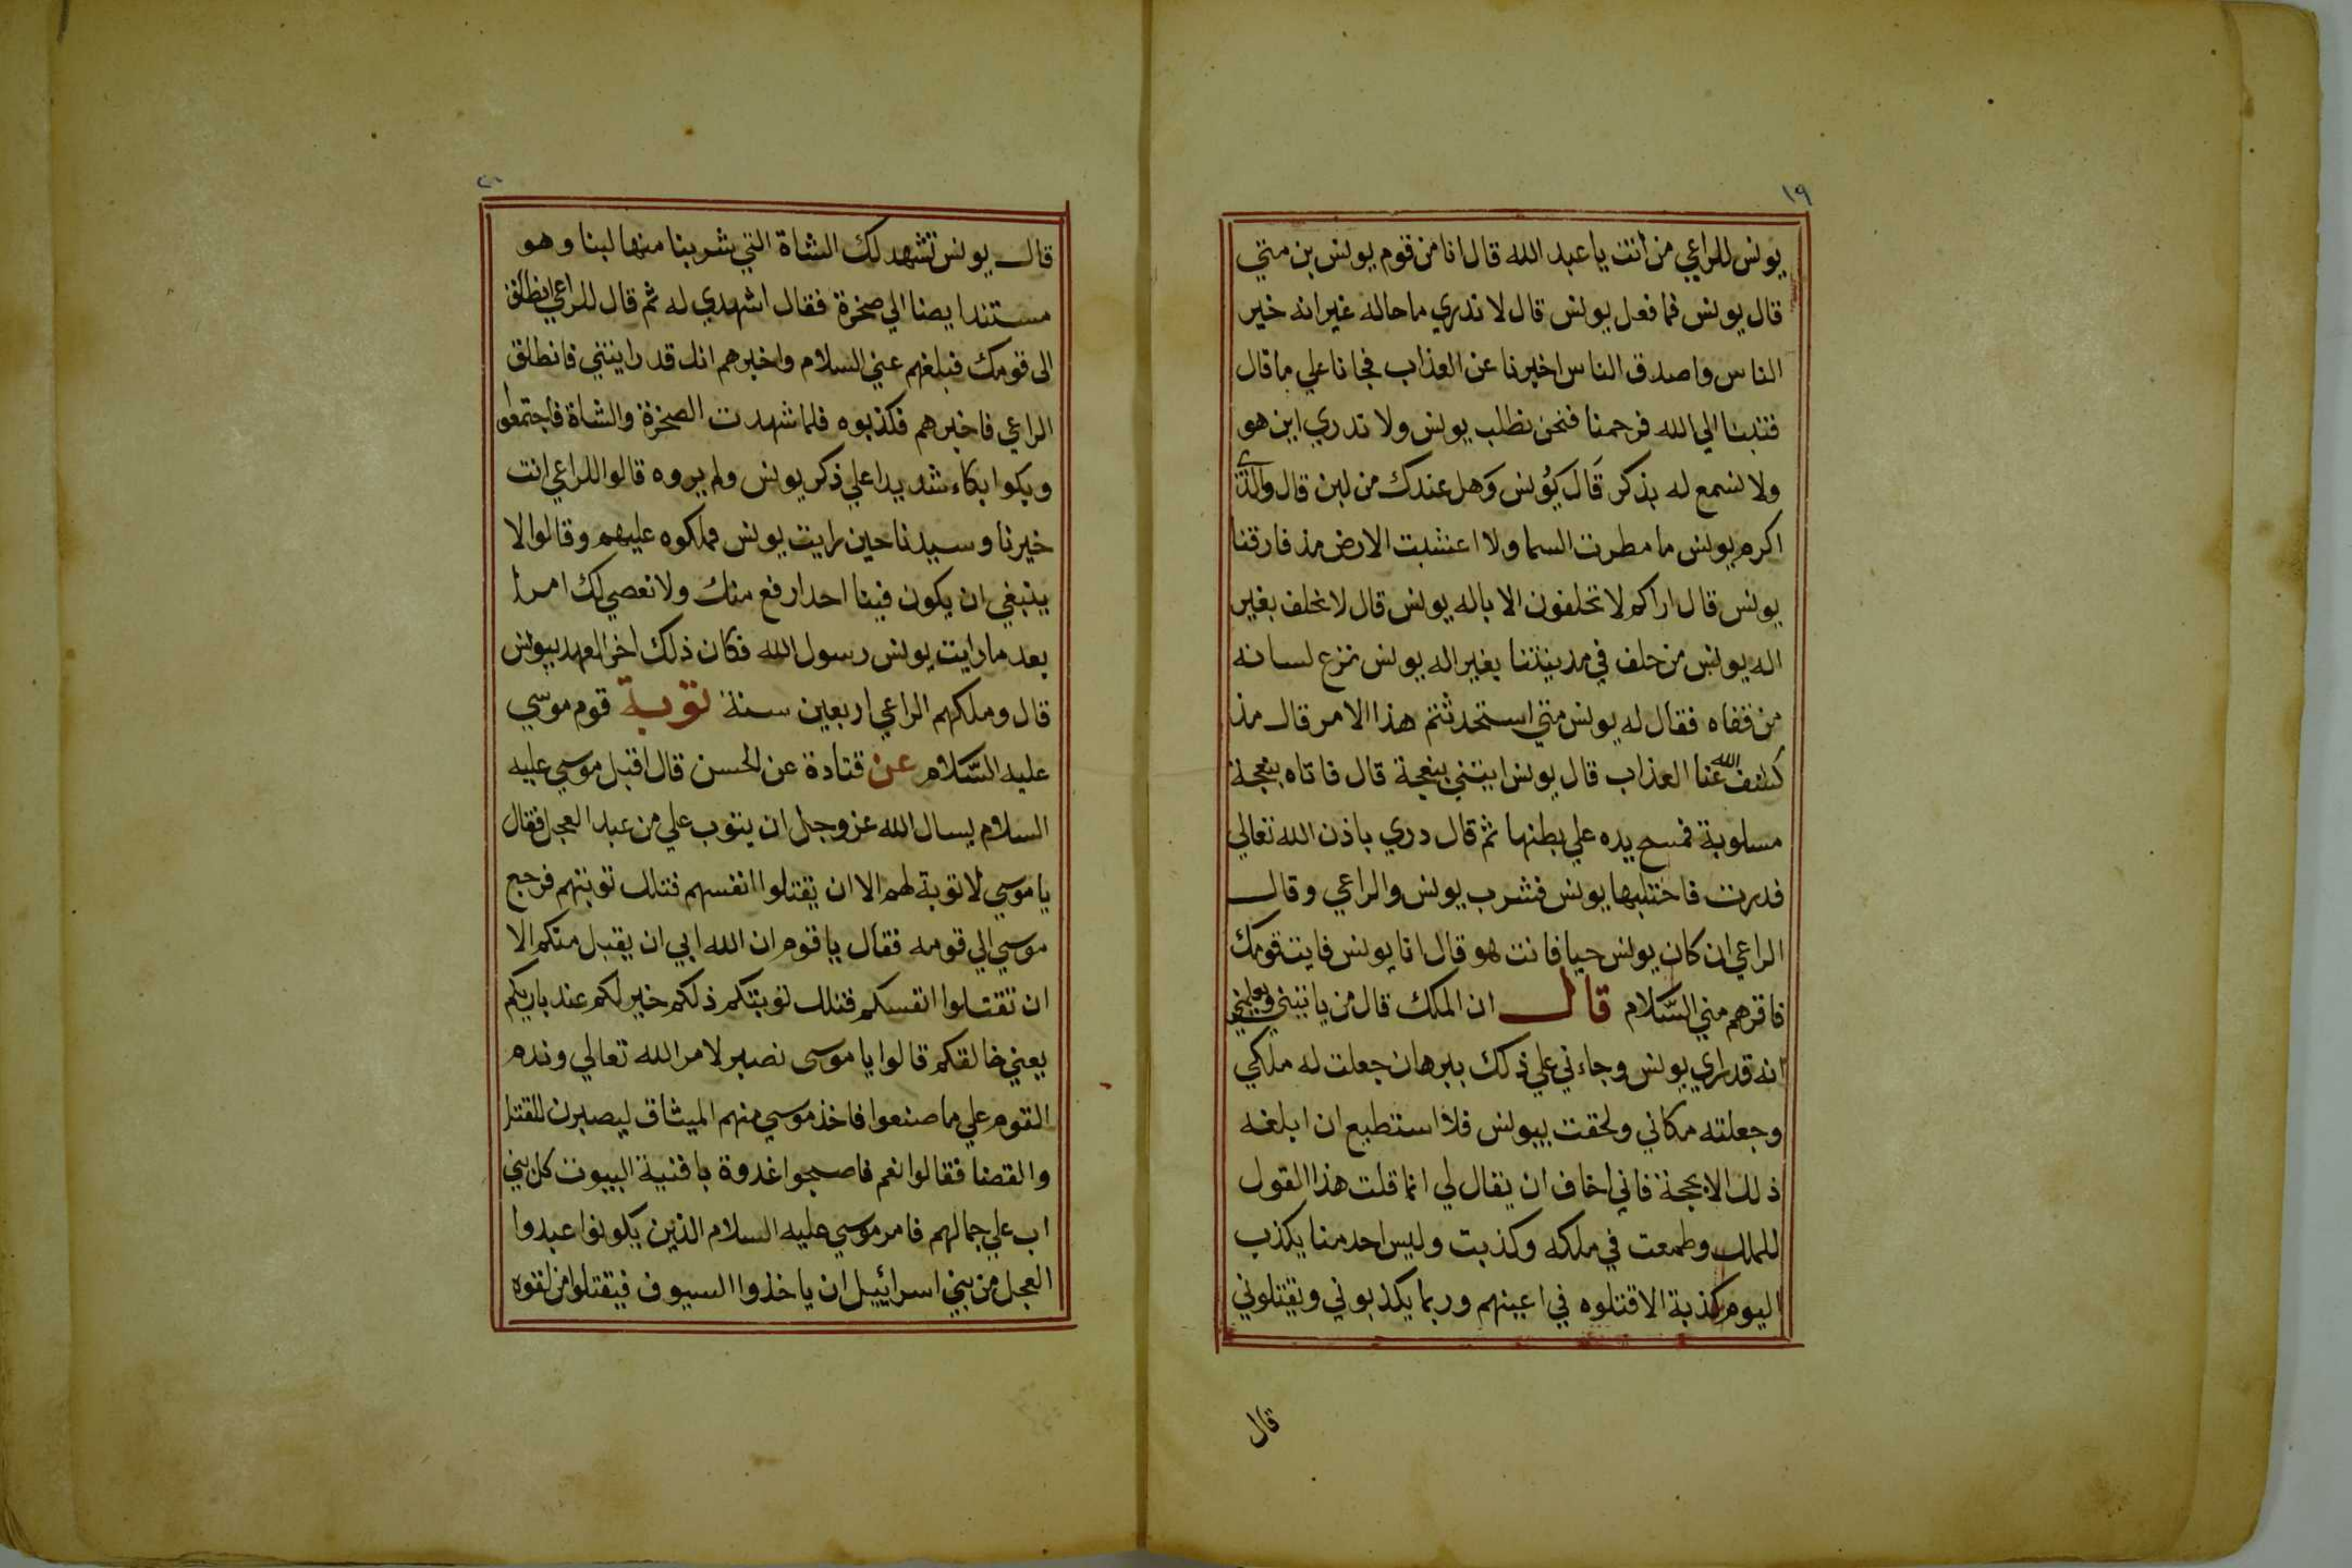 ١٩
يونس للراعي من انت يا عبد الله قال انا من قوم يونس بن متي
قال يونس فما فعل يونس قال لا ندري ما حاله غير انه خير
الناس واصدق الناس اخبرنا عن العذاب فجانا علي ما قال
فتبنا الي الله فرحمنا فنحن نطلب يونس ولا ندري اين هو
ولا نسمع له بذكر قَال يُونس وَهل عندك من لبن قال والذي
اكرم يونس ما مطرت السما ولا اعشبت الارض مذ فارقنا
يونس قال اراكم لا تحلفون الا باله يونس قال لا نحلف بغير
اله يونس من حلف في مدينتنا بغير اله يونس نزع لسانه
من قفاه فقال له يونس متي استحدثتم هذا الامر قال مذ
كشف الله عنا العذاب قال يونس ايتني بنعجة قال فاتاه بنعجة
مسلوبة فمسح يده علي بطنها ثم قال دري باذن الله تعالي
فدرت فاحتلبها يونس فشرب يونس والراعي وقال
الراعي ان كان يونس حيا فانت هو قال انا يونس فايت قومك
فاقرهم مني السَّلام قال ان الملك قال من ياتيني ويعلمني
انه قد راي يونس وجاءني علي ذلك ببرهان جعلت له ملكي
وجعلته مكاني ولحقت بيونس فلا استطيع ان ابلغه
ذلك الا بحجة فاني اخاف ان يقال لي انما قلت هذا القول
للملك وطمعت في ملكه وكذبت وليس احد منا يكذب
اليوم كذبة الا قتلوه في اعينهم وربما يكذبوني ويقتلوني
قال
قال يونس تشهد لك الشاة التي شربنا منها لبنا وهو
مستندا يصنا الي صخرة فقال اشهدي له ثم قال للراعي انطلق
الى قومك فبلغهم عني السلام واخبرهم انك قد رايتني فانطلق
الراعي فاخبرهم فكذبوه فلما شهدت الصخرة والشاة فاجتمعوا
وبكوا بكاء شديدا علي ذكر يونس ولم يروه قالوا للراعي انت
خيرنا وسيدنا حين رايت يونس فملكوه عليهم وقالوا لا
ينبغي ان يكون فينا احد ارفع منك ولا نعصي لك امرا
بعد ما رايت يونس رسول الله فكان ذلك اخر العهد بيونس
قال وملكهم الراعي اربعين سنة توبة قوم موسي
عليه السَّلام عن قتادة عن الحسن قال اقبل موسي عليه
السلام يسال الله عز وجل ان يتوب علي من عبد العجل فقال
يا موسي لا توبة لهم الا ان يقتلوا انفسهم فتلك توبتهم فرجع
موسي الي قومه فقال يا قوم ان الله ابي ان يقبل منكم الا
ان تقتلوا انفسكم فتلك توبتكم ذلكم خير لكم عند باريكم
يعني خالقكم قالوا يا موسى نصبر لامر الله تعالي وندم
القوم علي ما صنعوا فاخذ موسي منهم الميثاق ليصبرن للقتل
والقضا فقالوا نعم فاصبحوا غدوة بافنية البيوت كل بني
اب علي جمالهم فامر موسي عليه السلام الذين يكونوا عبدوا
العجل من بني اسرائيل ان ياخذوا السيوف فيقتلوا من لقوه